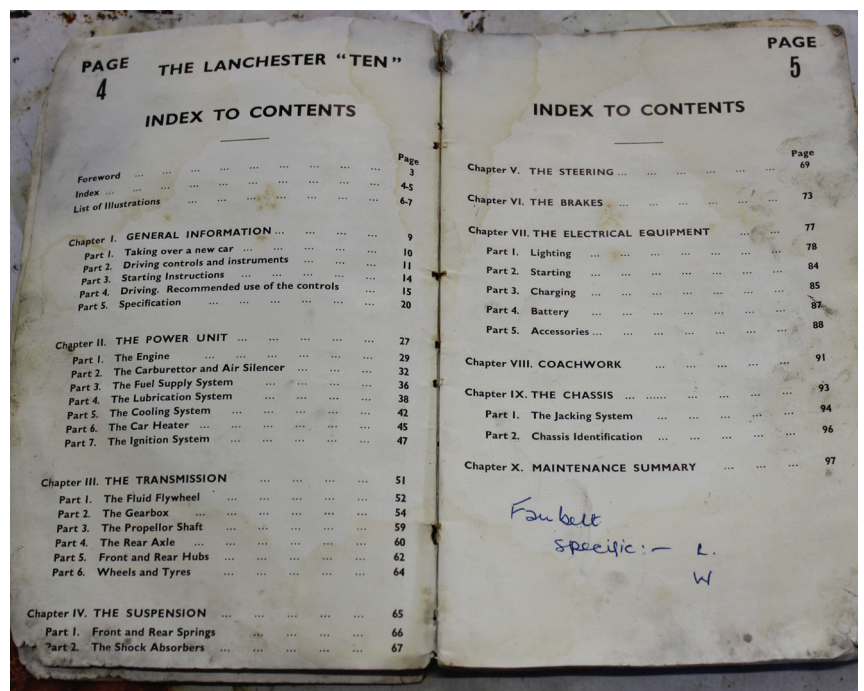 PAGE
4
THE LANCHESTER "TEN"
INDEX TO CONTENTS
Page
Foreword ... ... ... ... ... ... ... ... ... 3
Index ... ... ... ... ... ... ... ... ... ... 4-5
List of Illustrations ... ... ... ... ... ... ... 6-7
Chapter I. GENERAL INFORMATION ... ... ... ... 9
Part 1. Taking over a new car ... ... ... ... ... 10
Part 2. Driving controls and instruments ... ... ... 11
Part 3. Starting Instructions ... ... ... ... ... 14
Part 4. Driving. Recommended use of the controls ... 15
Part 5. Specification ... ... ... ... ... ... 20
Chapter II. THE POWER UNIT ... ... ... ... ... 27
Part 1. The Engine ... ... ... ... ... ... 29
Part 2. The Carburettor and Air Silencer ... ... ... 32
Part 3. The Fuel Supply System ... ... ... ... ... 36
Part 4. The Lubrication System ... ... ... ... ... 38
Part 5. The Cooling System ... ... ... ... ... 42
Part 6. The Car Heater ... ... ... ... ... ... 45
Part 7. The Ignition System ... ... ... ... ... 47
Chapter III. THE TRANSMISSION ... ... ... ... 51
Part 1. The Fluid Flywheel ... ... ... ... ... 52
Part 2. The Gearbox ... ... ... ... ... ... 54
Part 3. The Propellor Shaft ... ... ... ... ... 59
Part 4. The Rear Axle ... ... ... ... ... ... 60
Part 5. Front and Rear Hubs ... ... ... ... ... 62
Part 6. Wheels and Tyres ... ... ... ... ... 64
Chapter IV. THE SUSPENSION ... ... ... ... ... 65
Part 1. Front and Rear Springs ... ... ... ... 66
Part 2. The Shock Absorbers ... ... ... ... ... 67
PAGE
5
INDEX TO CONTENTS
Page
Chapter V. THE STEERING ... ... ... ... ... ... 69
Chapter VI. THE BRAKES ... ... ... ... ... ... 73
Chapter VII. THE ELECTRICAL EQUIPMENT ... ... 77
Part 1. Lighting ... ... ... ... ... ... 78
Part 2. Starting ... ... ... ... ... ... 84
Part 3. Charging ... ... ... ... ... ... 85
Part 4. Battery ... ... ... ... ... ... 87
Part 5. Accessories ... ... ... ... ... ... 88
Chapter VIII. COACHWORK ... ... ... ... ... 91
Chapter IX. THE CHASSIS ... ...... ... ... ... ... 93
Part 1. The Jacking System ... ... ... ... ... 94
Part 2. Chassis Identification ... ... ... ... ... 96
Chapter X. MAINTENANCE SUMMARY ... ... ... 97
Fan belt
specific :- L.
W